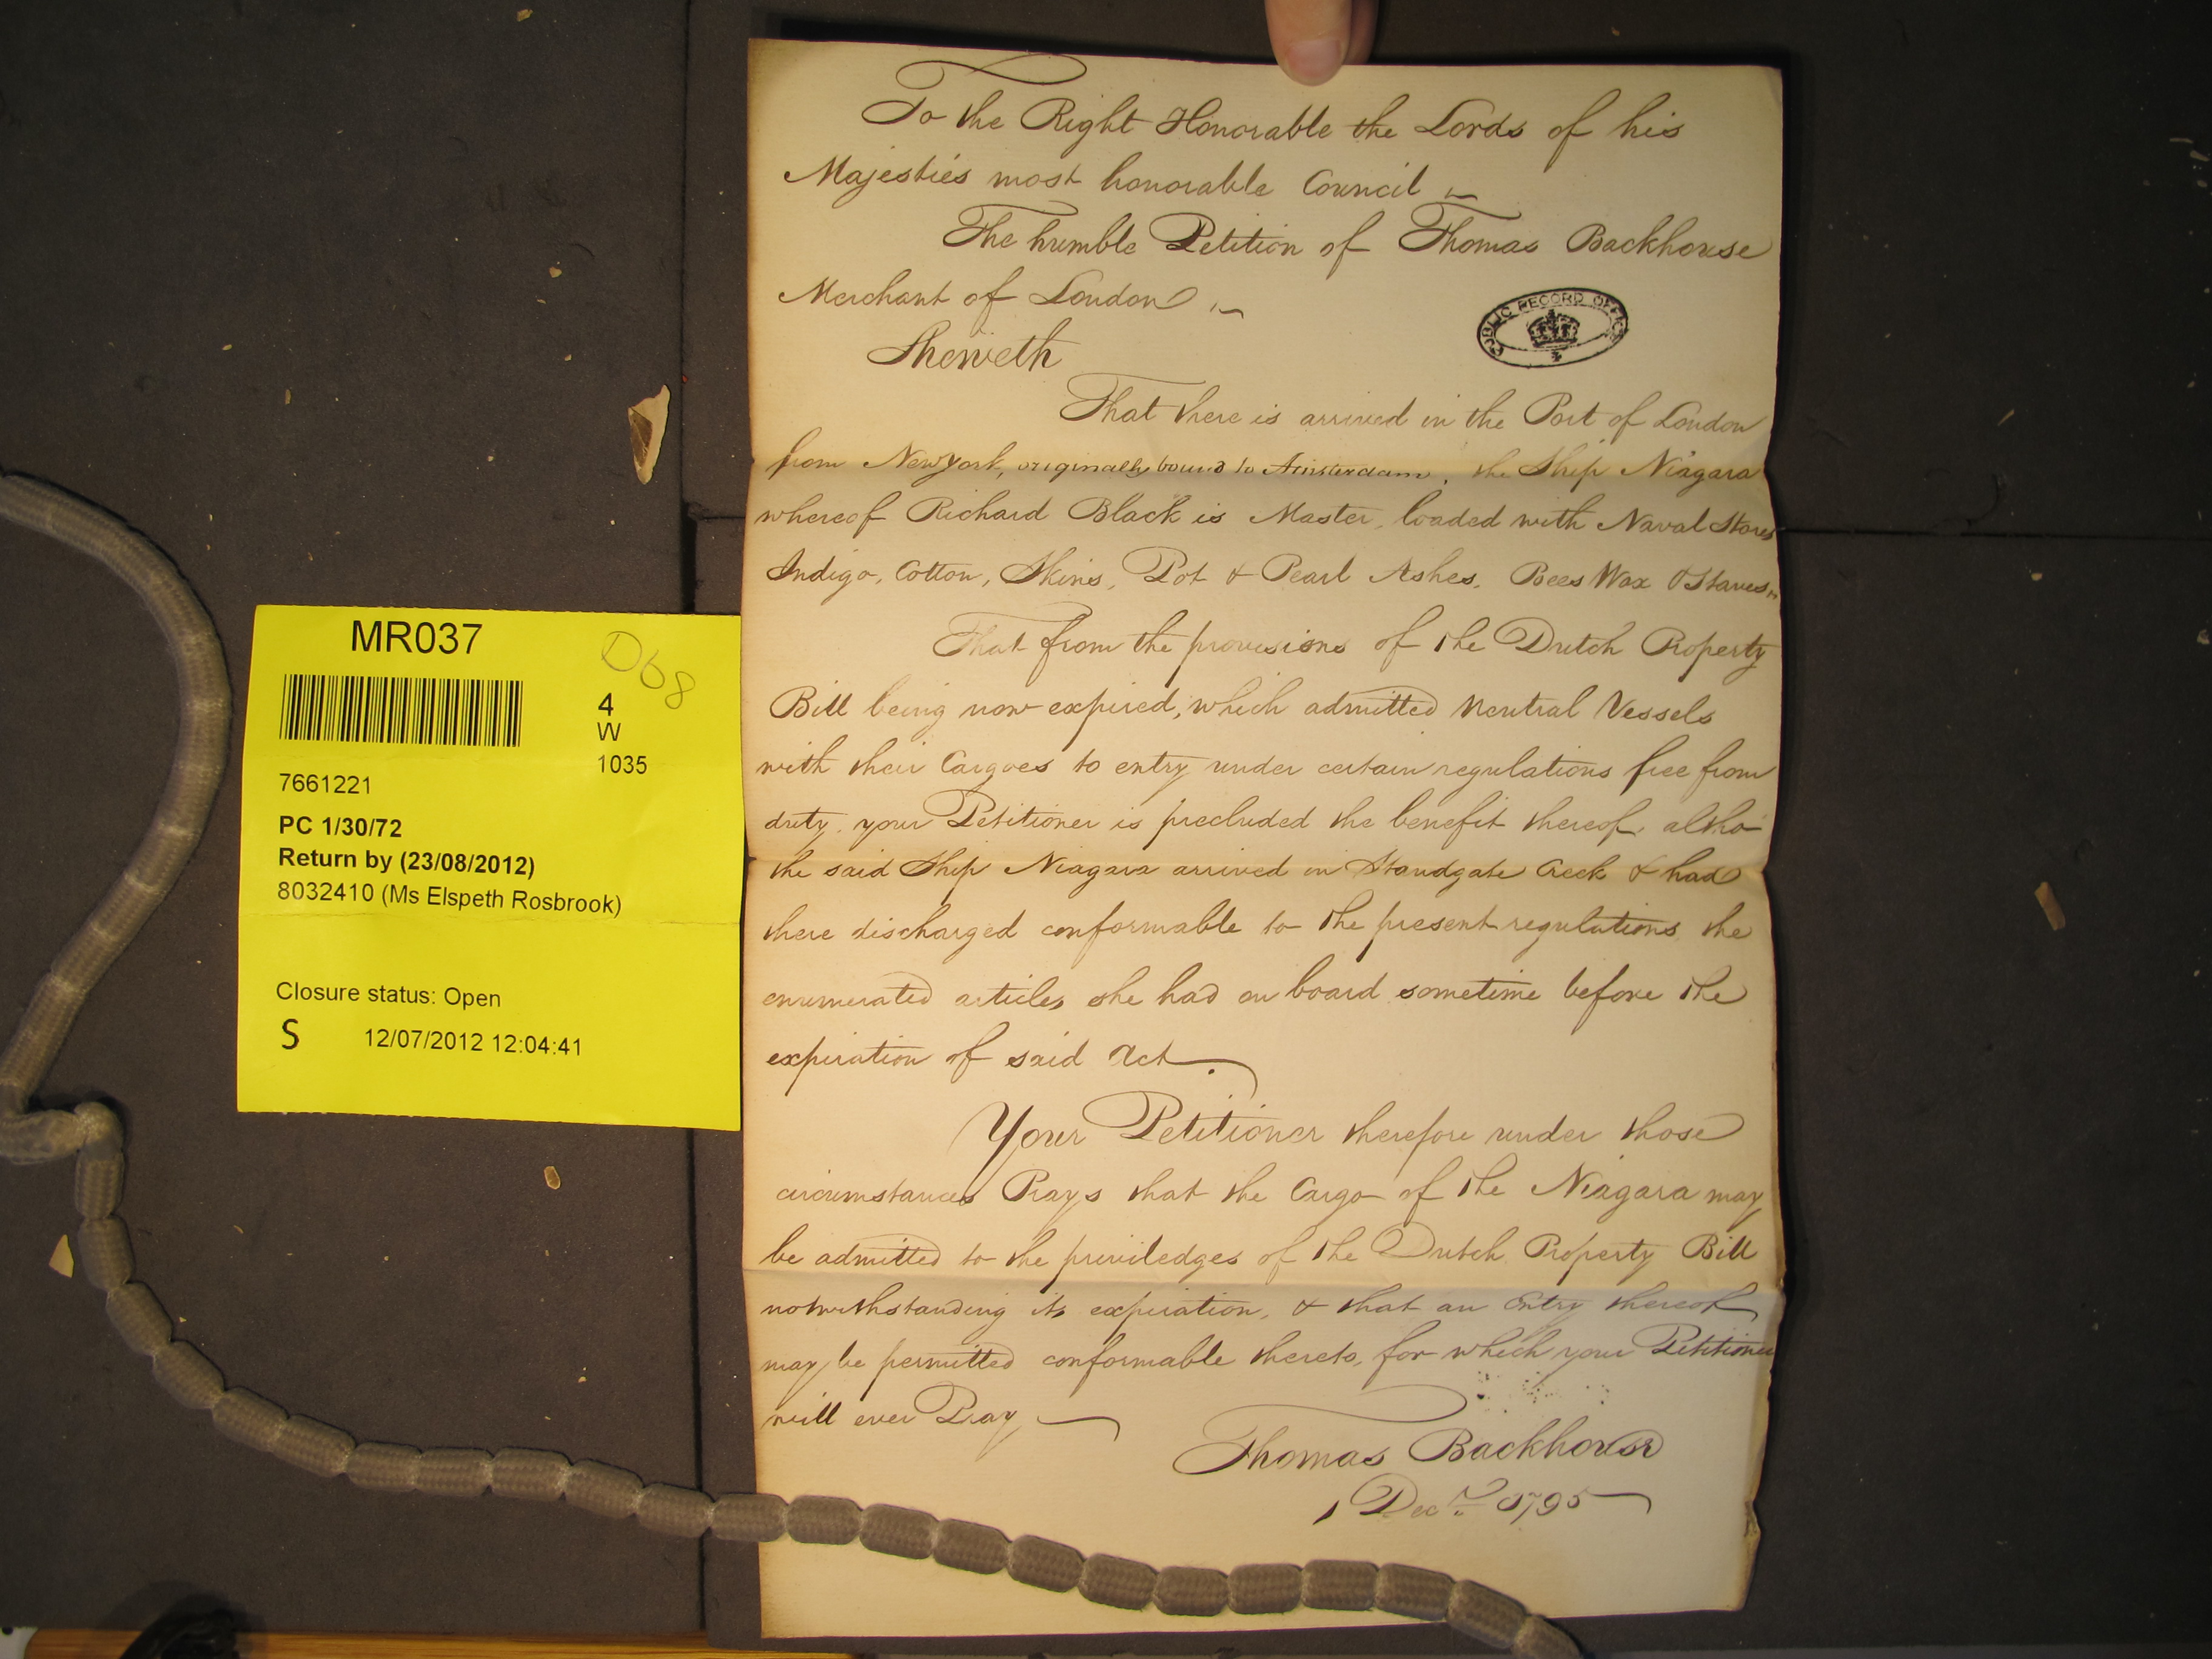 To the Right Honorable the Lords of his
Majesties most honorable Council
The humble Petition of Thomas Backhouse
Merchant of London
Sheweth
PUBLIC RECORD OFFICE
That there is arrived in the Port of London
from New York, originally bound to Amsterdam, the Ship Niagara
whereof Richard Black is Master, loaded with Naval Stores
Indigo, Cotton, Skins, Pot & Pearl Ashes, Bees Wax & Staves
That from the provisions of the Dutch Property
Bill being now expired, which admitted Neutral Vessels
with their Cargoes to entry under certain regulations free from
duty, your Petitioner is precluded the benefit thereof, altho
the said Ship Niagara arrived in Standgate Creek & had
there discharged conformable to the present regulations the
enumerated articles she had on board sometime before the
expiration of said Act.
Your Petitioner therefore under those
circumstances Prays that the Cargo of the Niagara may
be admitted to the priviledges of the Dutch Property Bill
notwithstanding its expiration, & that an Entry thereof
may be permitted conformable thereto, for which your Petitioner
will ever Pray
Thomas Backhouse
1 Decr. 1795
MR037
D68
4
W
1035
7661221
PC 1/30/72
Return by (23/08/2012)
8032410 (Ms Elspeth Rosbrook)
Closure status: Open
S 12/07/2012 12:04:41